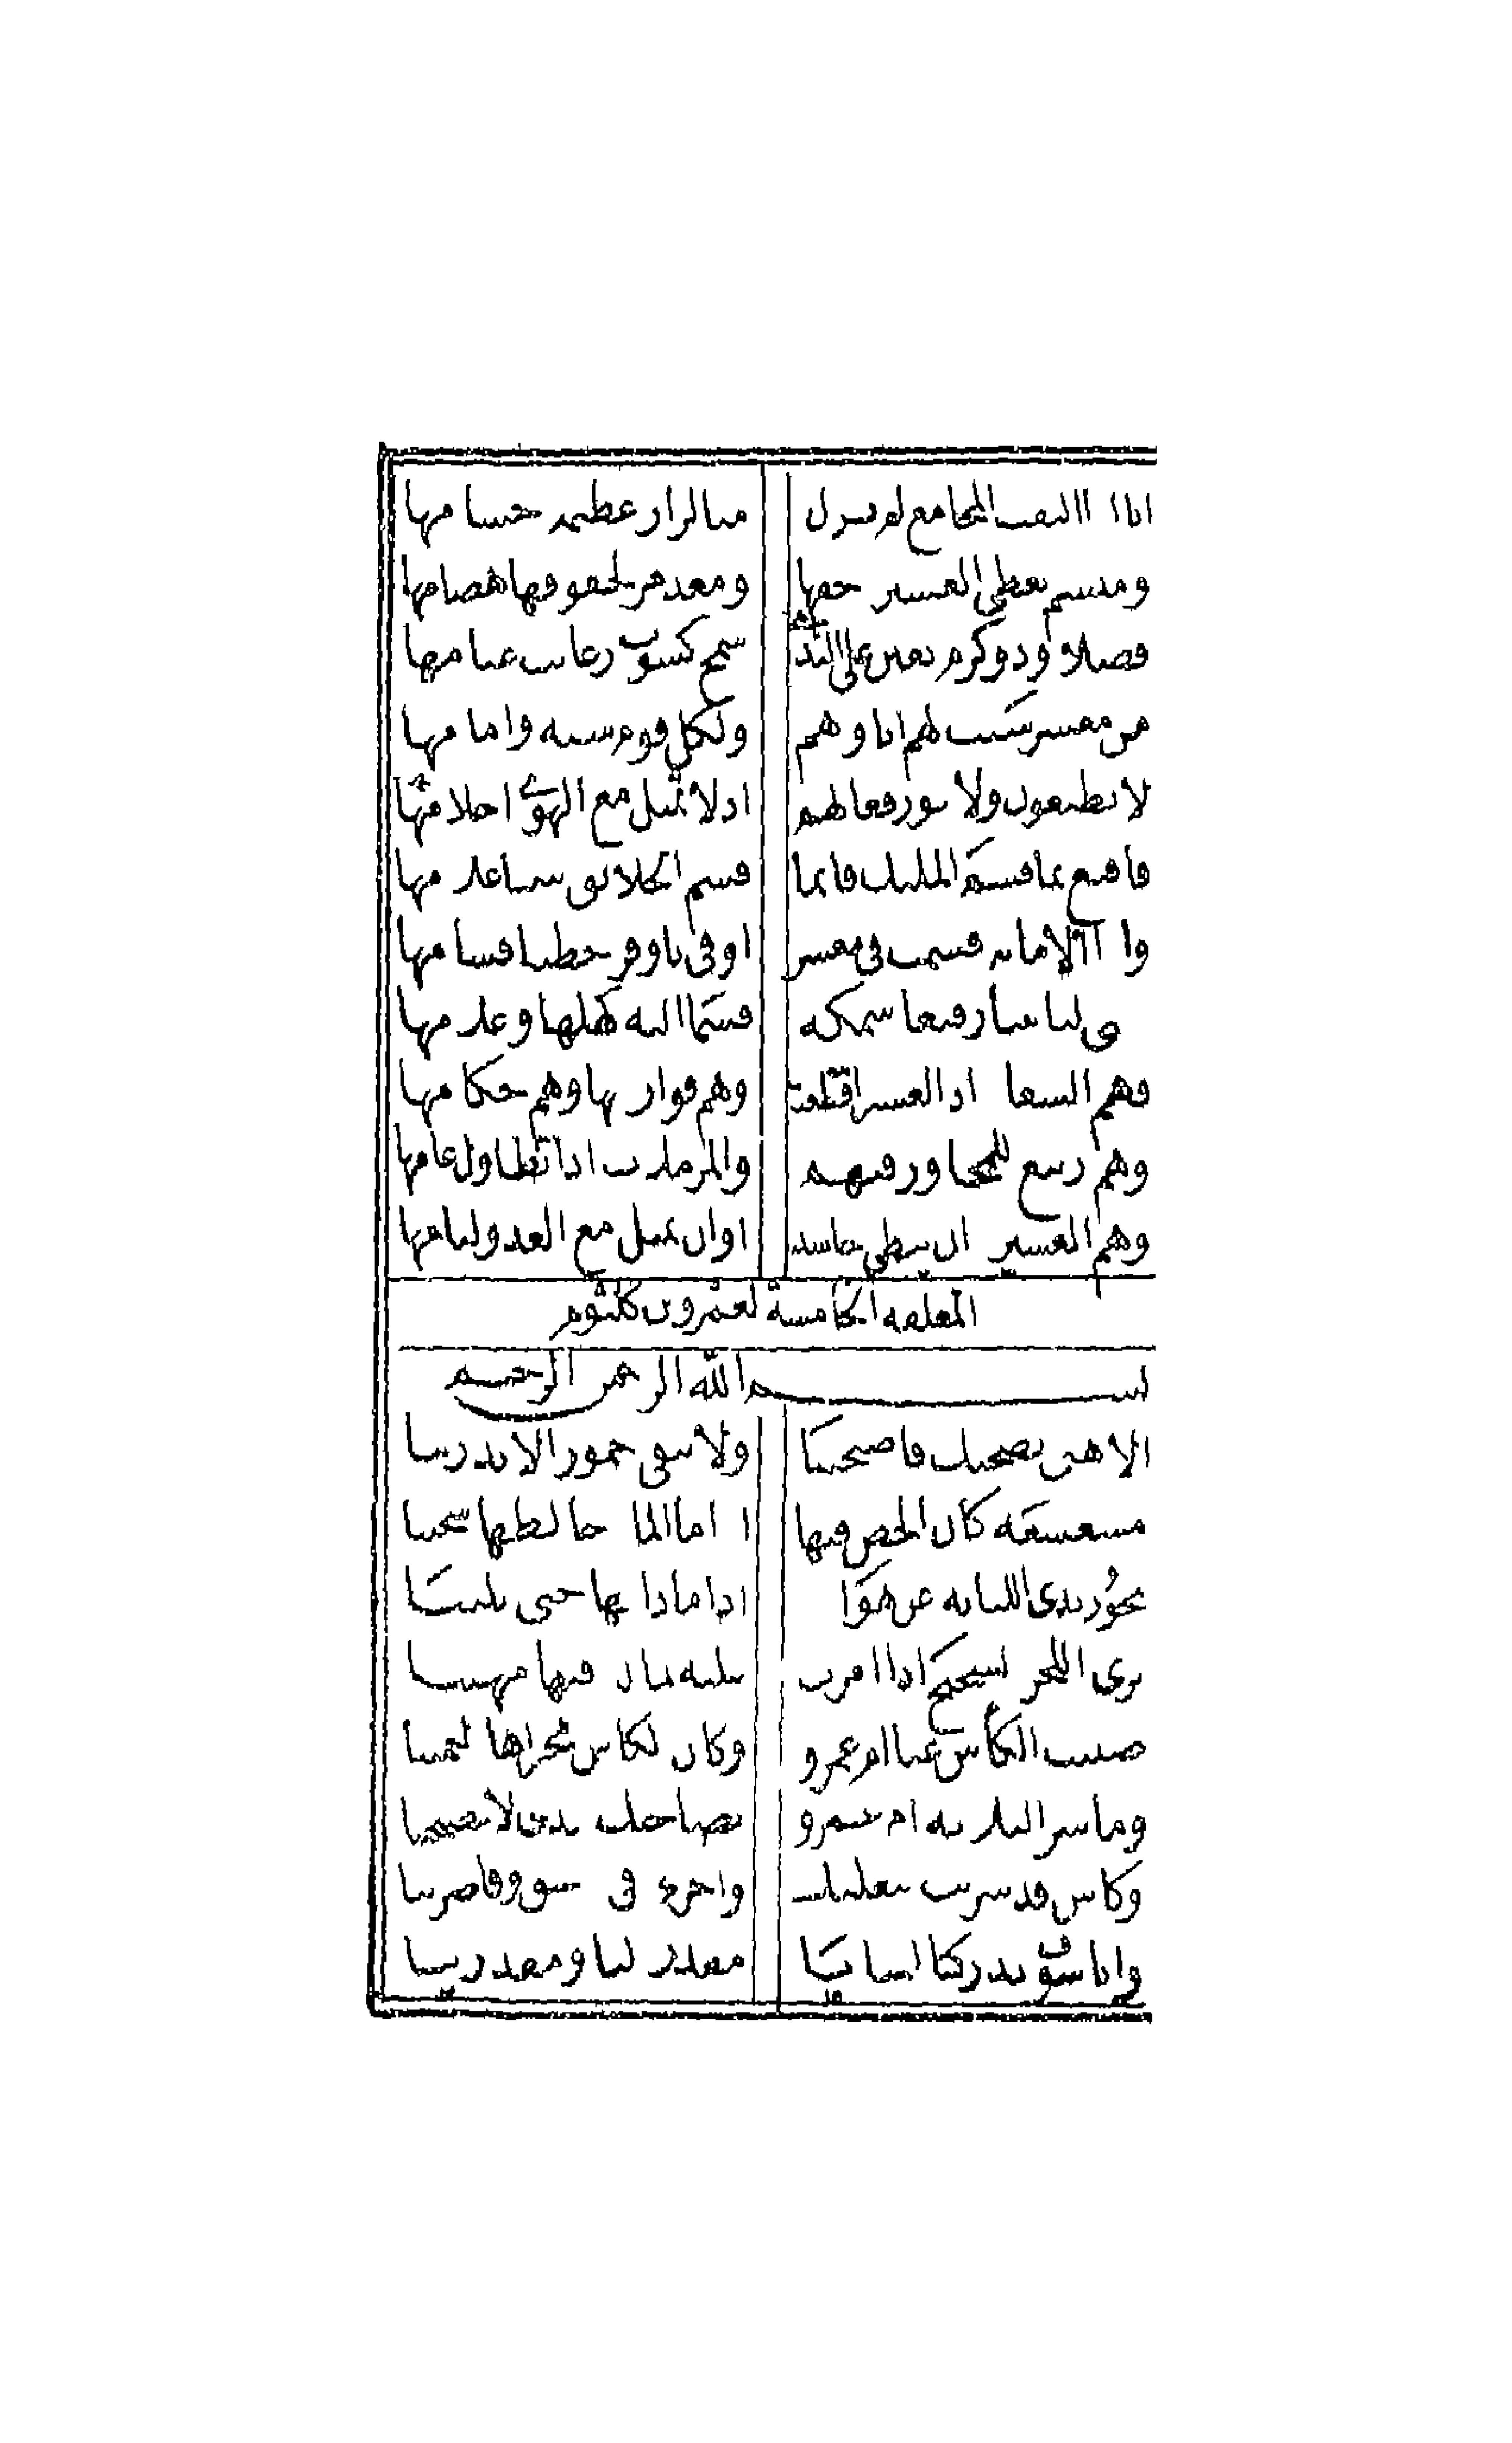 انا اذا التقت المجامع لم يزل منا لزاز عظيمة جسامها
ومقسم يعطي العشيرة حقها ومغذمر لحقوقها هضامها
فضلا وذو كرم يعين على الندى سمح كسوب رغائب غنامها
من معشر سنت لهم اباوهم ولكل قوم سنة وامامها
لا يطبعون ولا يبور فعالهم اذ لا تميل مع الهوى احلامها
فاقنع بما قسم المليك فانما قسم الخلائق بيننا علامها
واذا الامانة قسمت في معشر اوفى باوفر حظنا قسامها
فبنى لنا بيتا رفيعا سمكه فسما اليه كهلها وغلامها
وهم السعاة اذا العشيرة افظعت وهم فوارسها وهم حكامها
وهم ربيع للمجاور فيهم والمرملات اذا تطاول عامها
وهم العشيرة ان يبطي حاسد او ان يميل مع العدو ليامها
المعلقة الخامسة لعمرو بن كلثوم
بسم الله الرحمن الرحيم
الا هبي بصحنك فاصبحينا ولا تبقي خمور الاندرينا
مشعشعة كان الحص فيها اذا ما الماء خالطها سخينا
تجور بذي اللبانة عن هواه اذا ما ذاقها حتى يلينا
ترى اللحز الشحيح اذا امرت عليه لماله فيها مهينا
صبنت الكأس عنا ام عمرو وكان الكاس مجراها اليمينا
وما شر الثلاثة ام عمرو بصاحبك الذي لا تصبحينا
وكاس قد شربت ببعلبك واخرى في دمشق وقاصرينا
وانا سوف تدركنا المنايا مقدرة لنا ومقدرينا